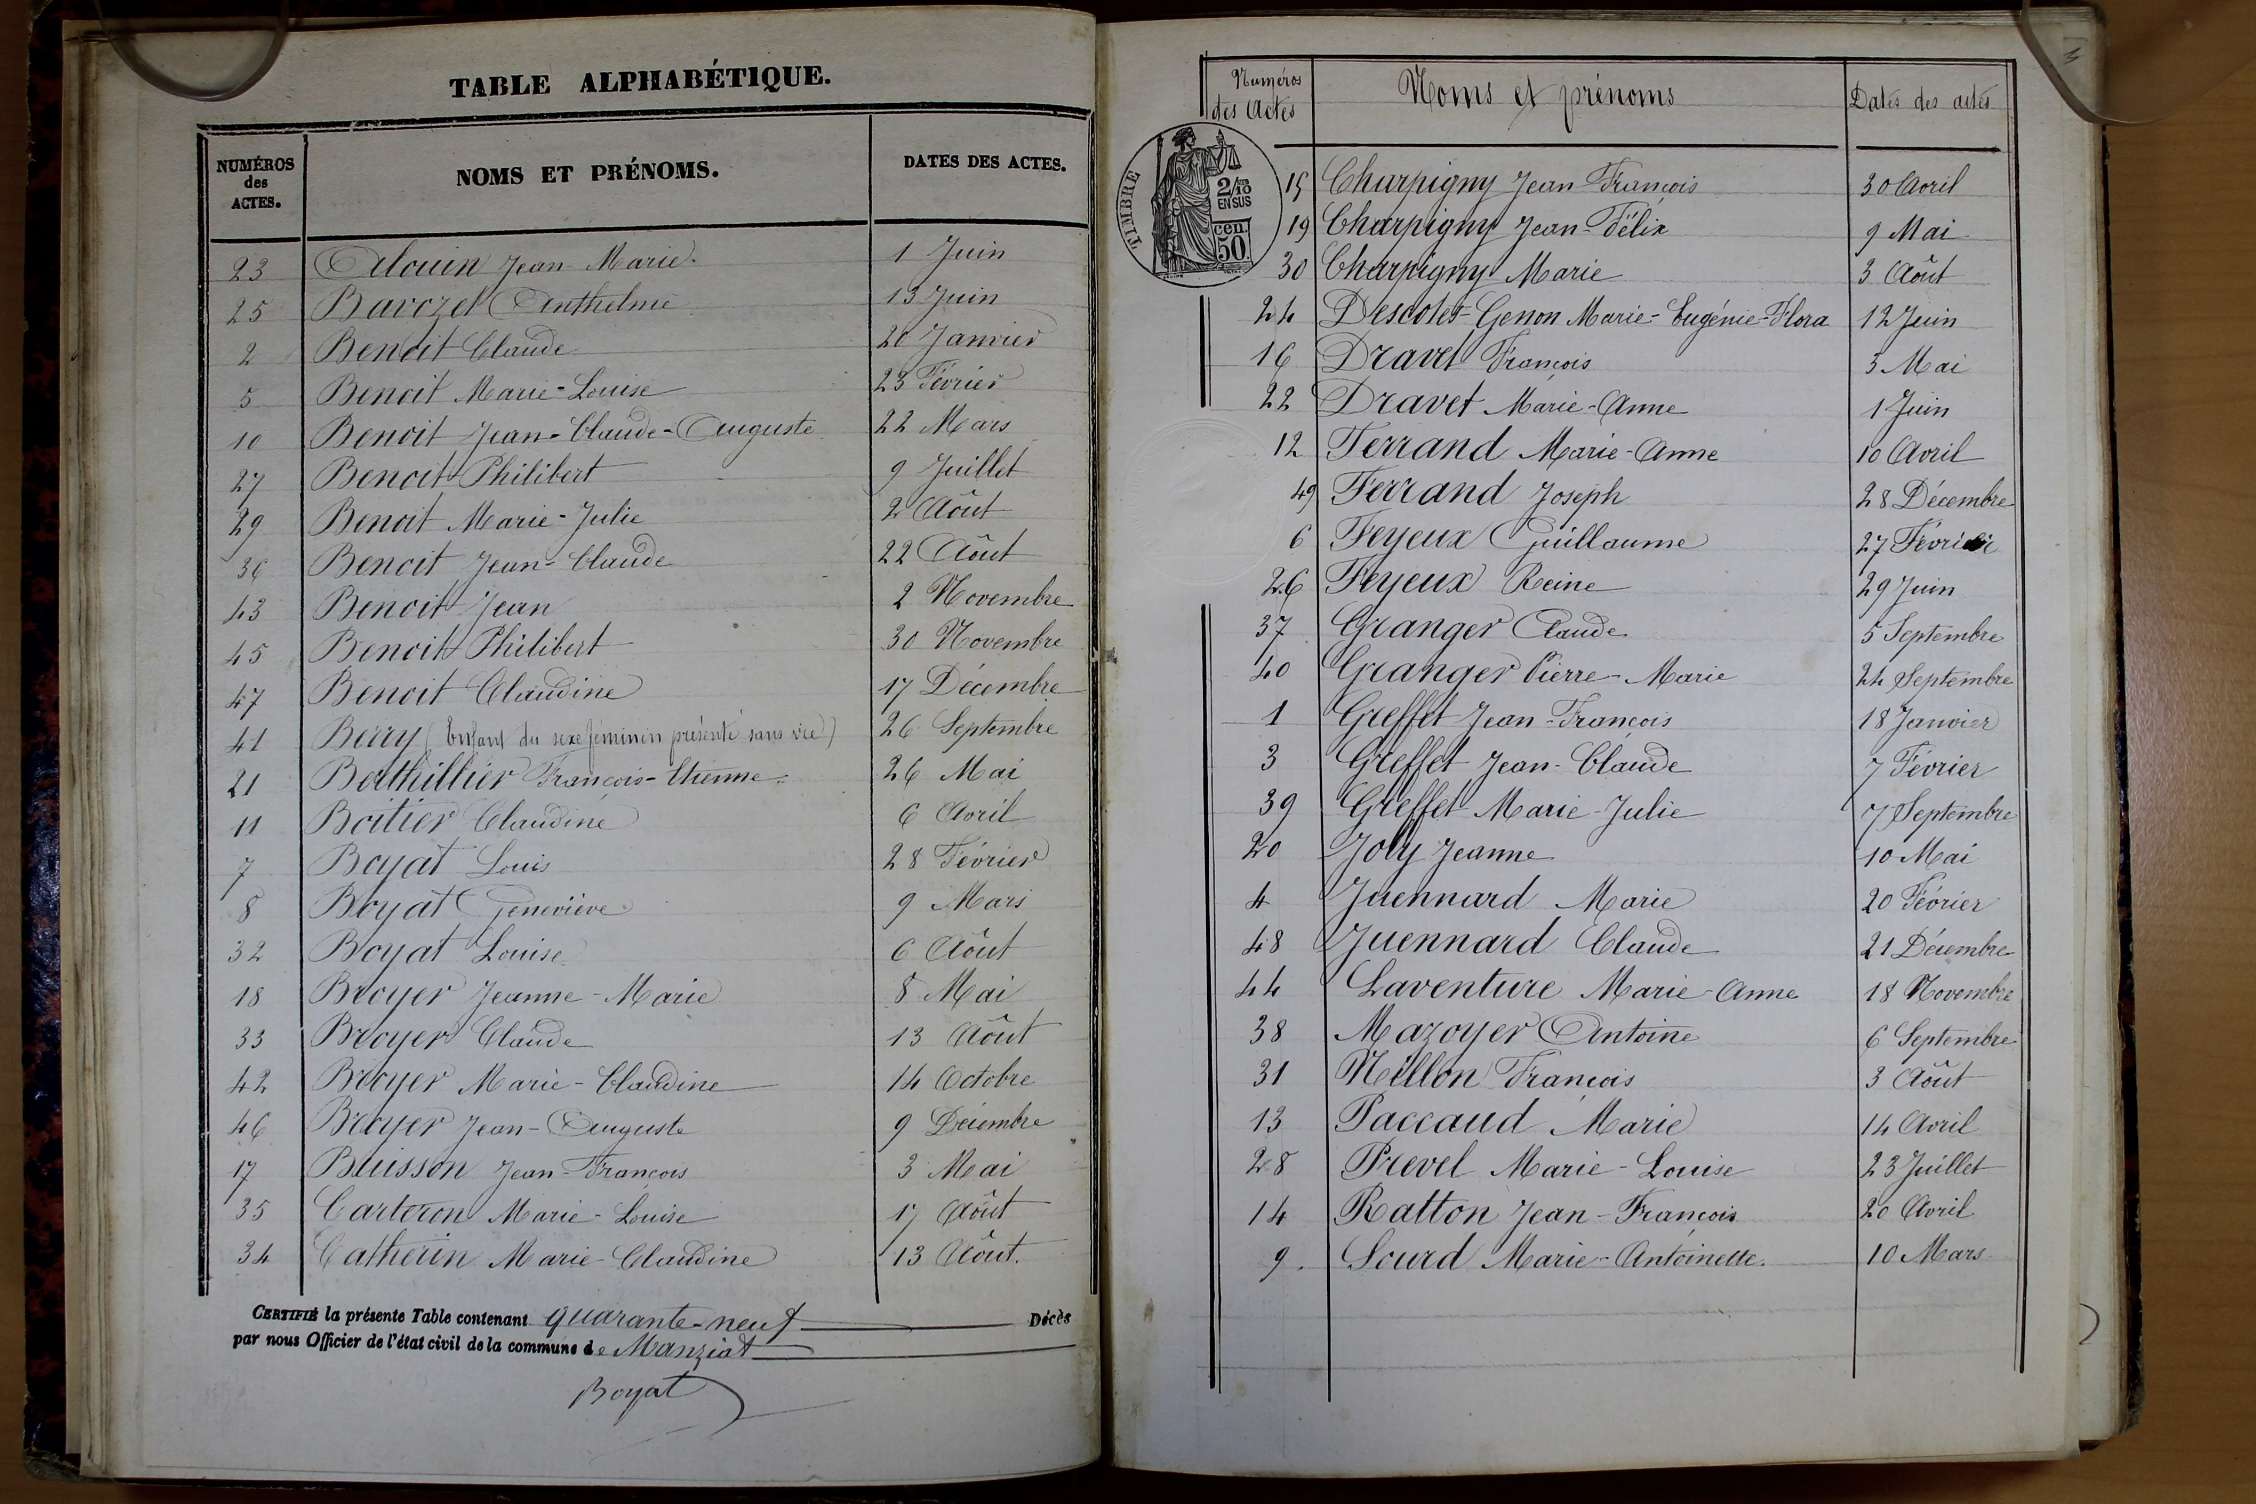 TABLE ALPHABÉTIQUE.
NUMÉROS des ACTES. NOMS ET PRÉNOMS. DATES DES ACTES.
23 Alouin Jean Marie. 1 Juin
25 Bavozet Anthelme 13 Juin
2 Benoit Claude 20 Janvier
5 Benoit Marie-Louise 23 Février
10 Benoit Jean-Claude-Auguste 22 Mars
27 Benoit Philibert 9 Juillet
29 Benoit Marie-Julie 2 Aôut
36 Benoit Jean-Claude 22 Aôut
43 Benoit Jean 2 Novembre
45 Benoit Philibert 30 Novembre
47 Benoit Claudine 17 Décembre
41 Berry (Enfant du sexe féminin présenté sans vie) 26 Septembre
21 Berthillier François-Etienne. 26 Mai
11 Boitier Claudine 6 Avril
7 Boyat Louis 28 Février
8 Boyat Geneviève 9 Mars
32 Boyat Louise 6 Aôut
18 Broyer Jeanne-Marie 8 Mai
33 Broyer Claude 13 Aôut
42 Broyer Marie-Claudine 14 Octobre
46 Broyer Jean-Auguste 9 Décembre
17 Buisson Jean-François 3 Mai
35 Carteron Marie-Louise 17 Aôut
34 Catherin Marie-Claudine 13 Aôut.
CERTIFIÉ la présente Table contenant quarante-neuf Décès
par nous Officier de l'état civil de la commune de Manziat
Boyat
3
Numéros des Actes Noms et prénoms Dates des actes
TIMBRE
2/10 EN SUS
50 cen.
15 Charpigny Jean François 30 Avril
19 Charpigny Jean-Félix 9 Mai
30 Charpigny Marie 3 Aôut
24 Descotes-Genon Marie-Eugénie-Flora 12 Juin
16 Dravet François 3 Mai
22 Dravet Marie-Anne 1 Juin
12 Ferrand Marie-Anne 10 Avril
49 Ferrand Joseph 28 Décembre
6 Feyeux Guillaume 27 Février
26 Feyeux Reine 29 Juin
37 Granger Claude 5 Septembre
40 Granger Pierre-Marie 24 Septembre
1 Greffet Jean-François 18 Janvier
3 Greffet Jean-Claude 7 Février
39 Greffet Marie-Julie 7 Septembre
20 Joly Jeanne 10 Mai
4 Juennard Marie 20 Février
48 Juennard Claude 21 Décembre
44 Laventure Marie-Anne 18 Novembre
38 Mazoyer Antoine 6 Septembre
31 Nillon François 3 Aôut
13 Paccaud Marie 14 Avril
28 Prevel Marie-Louise 23 Juillet
14 Ratton Jean-François 20 Avril
9. Sourd Marie-Antoinette. 10 Mars